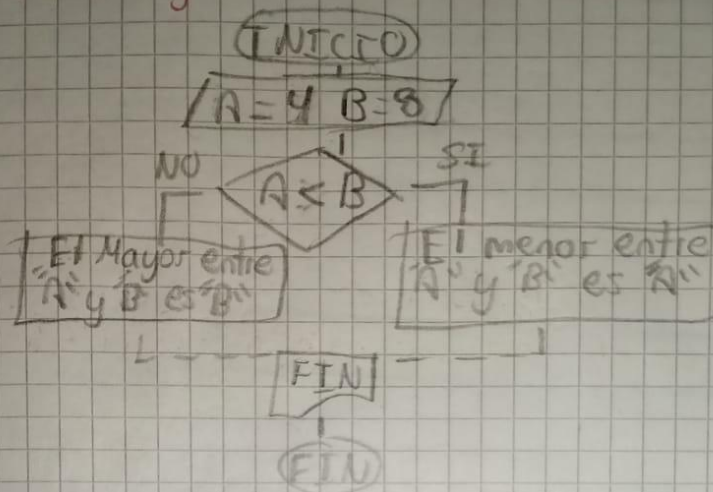 INICIO
A=4 B=8
NO
SI
A≤B
El Mayor entre
"A" y "B" es "B"
El menor entre
"A" y "B" es "A"
FIN
FIN